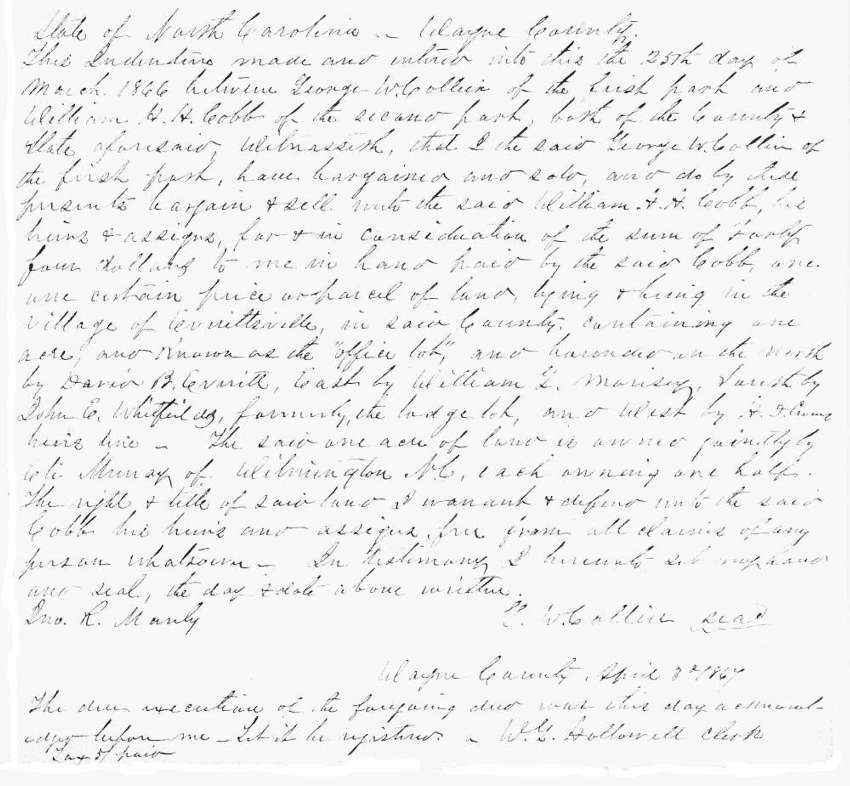 State of North Carolina - Wayne County.
This Indenture made and entered into this the 25th day of
March 1866 between George W. Collier of the first part and
William H. H. Cobb of the second part, both of the County &
State aforesaid, Witnesseth, that I the said George W. Collier of
the first part, have bargained and sold, and do by these
presents bargain & sell unto the said William H. H. Cobb, his
heirs & assigns, for & in consideration of the sum of Forty
four dollars to me in hand paid by the said Cobb, one
one certain piece or parcel of land, lying & being in the
Village of Everittsville, in said County, containing one
acre, and known as the "office lot", and bounded on the North
by David B. Everitt, East by William G. Morisey, South by
John E. Whitfields, formerly, the lodge lot, and West by
heirs line - The said one acre of land is owned jointly by
Murray of Wilmington NC, each owning one half.
The right & title of said land I warrant & defend unto the said
Cobb his heirs and assigns, free from all claims of any
person whatsoever - In testimony I hereunto set my hand
and seal, the day & date above written.
Jno. R. Manly G. W. Collier seal
Wayne County April 3d 1867
The due execution of the foregoing deed was this day acknowl-
edged before me - Let it be registered. - W. G. Hollowell Clerk
Tax paid